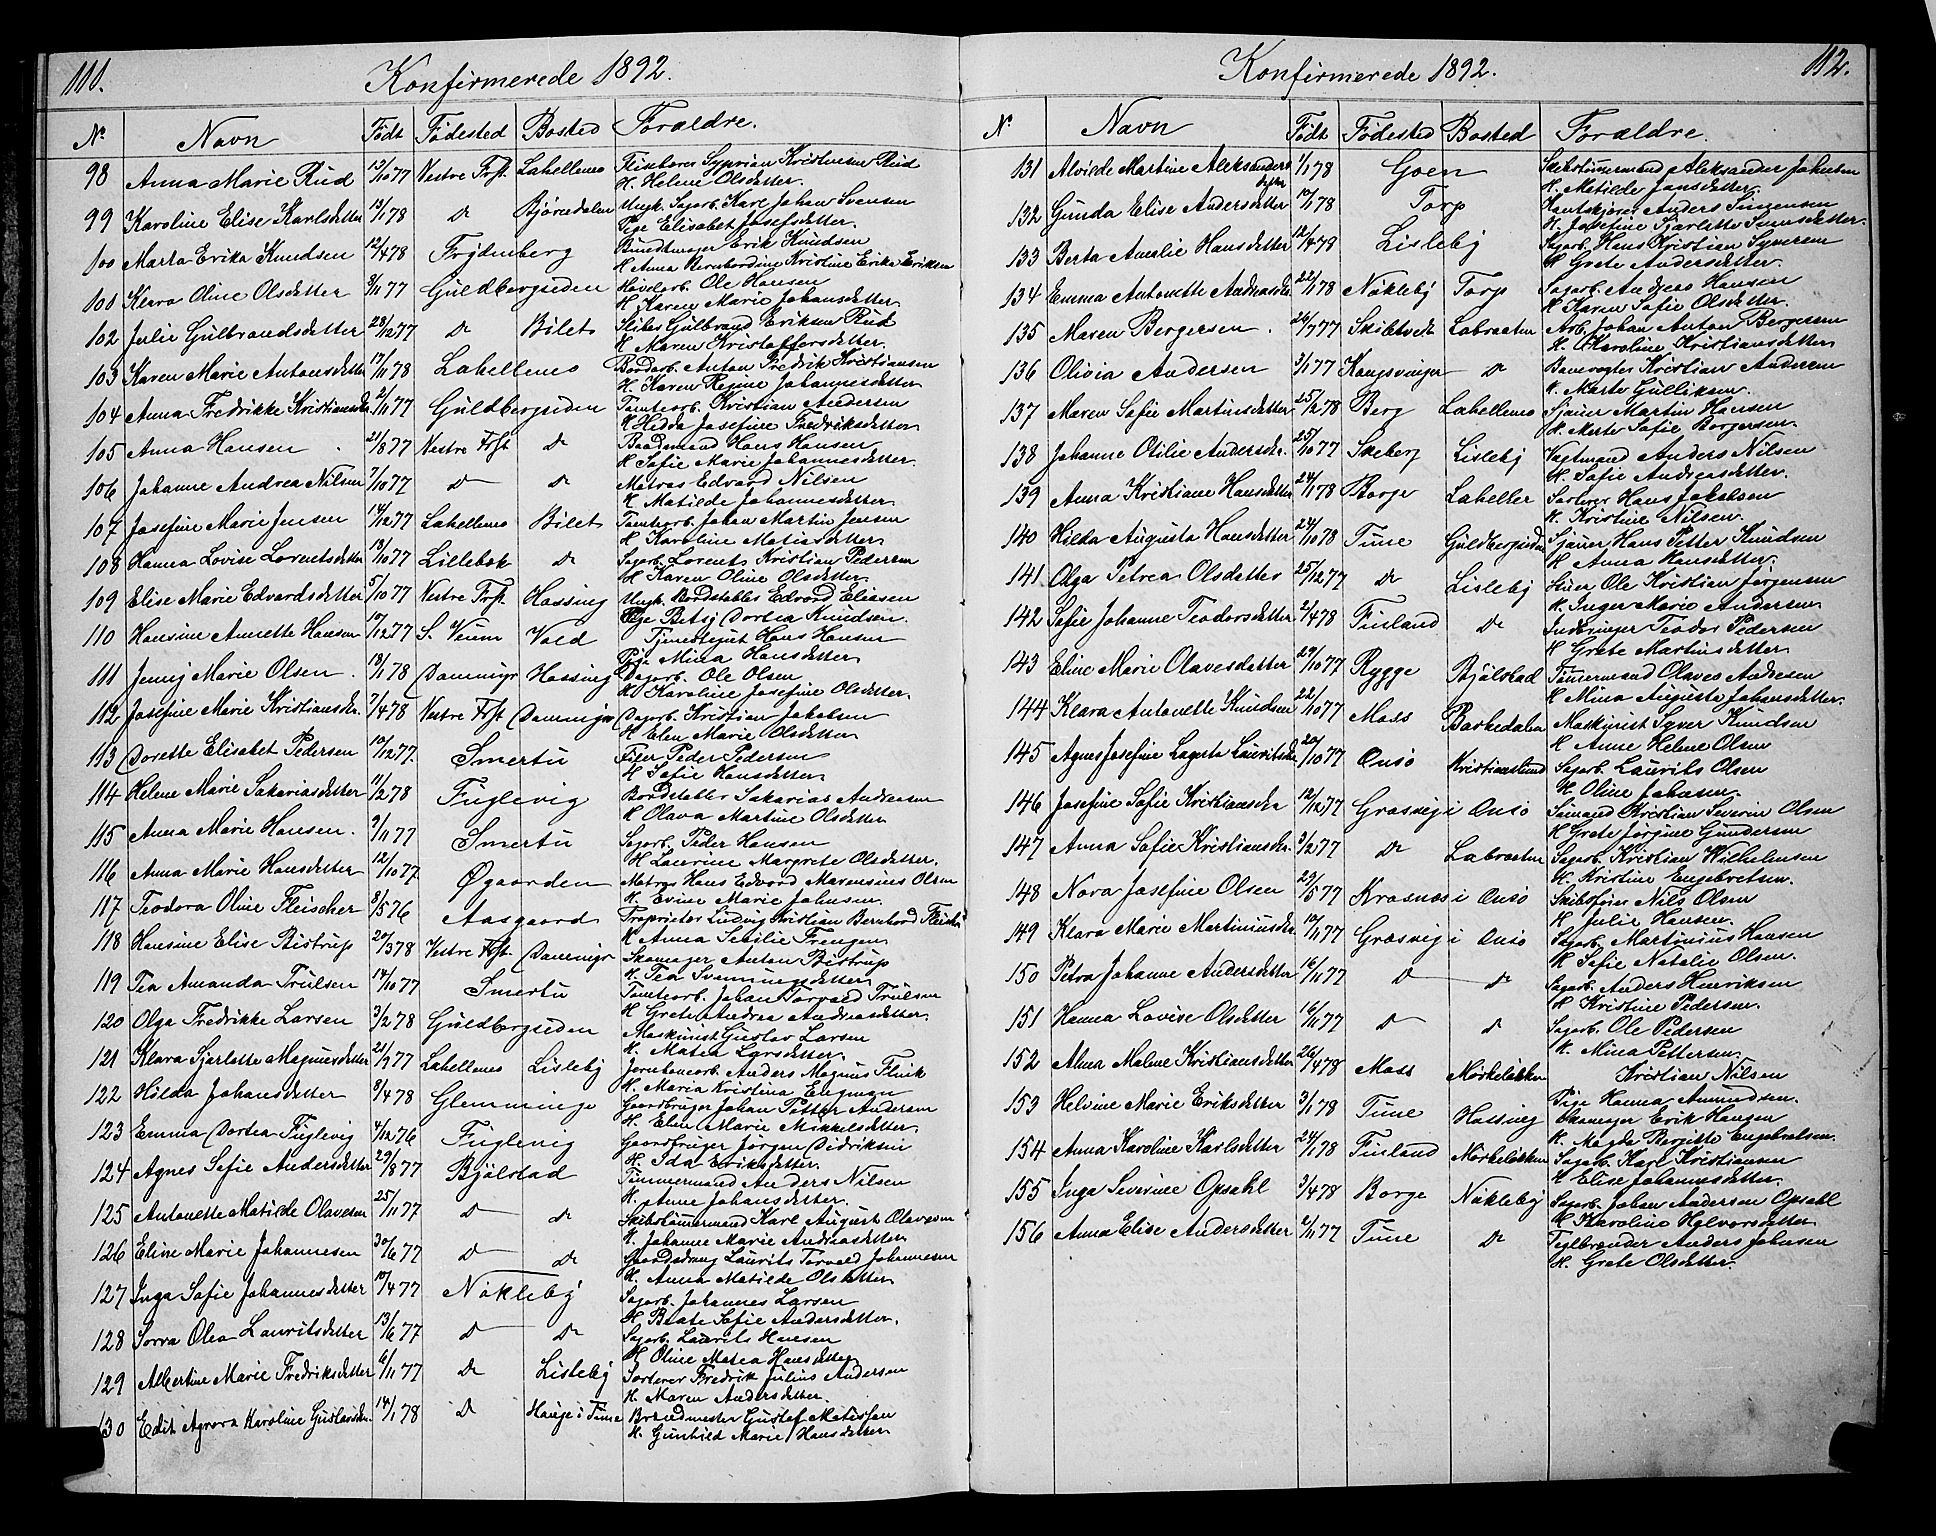 111.
Konfirmerede 1892.
Nº Navn Födt Födested Bosted Forældre.
98 Anna Marie Rud 13/10 77 Vestre Frst. Labellens Kristensen Rud
H. Helene Olsdatter.
99 Karoline Elise Karlsdatter 13/1 78 Do Björnedalen Ungk. Sagarb. Karl Johan Svensen
Pige Elisabet Josefsdatter.
100 Marta Erika Knudsen 12/4 78 Frydenberg Bundtmager Erik Knudsen
H. Anna Bernhardine Kristine Erika Eriksen
101 Klara Oline Olsdatter 3/11 77 Guldbergsiden Hövlarb. Ole Hansen
H. Karen Marie Johansdatter.
102 Julie Gulbrandsdatter 28/12 77 Do Bilet Gulbrand Eriksen Rud
H. Maren Kristoffersdatter.
103 Karen Marie Antonsdatter 17/1 78 Labellens Bordarb. Anton Fredrik Kristiansen
H. Karen Regine Johannesdatter
104 Anna Fredrikke Kristiansdr. 2/11 77 Guldbergsiden Tomtearb. Kristian Andersen
H. Hilda Josefine Fredriksdatter
105 Anna Hansen 21/8 77 Vestre Frst Do Baadsmand Hans Hansen
H. Sofie Marie Johannesdatter.
106 Johanne Andrea Nilsen 7/10 77 Do Do Matros Edvard Nilsen
H. Matilde Johannesdatter.
107 Josefine Marie Jensen 14/12 77 Labellens Bilet Tomtearb. Johan Martin Jensen
H. Karoline Matiasdatter
108 Hanna Lovise Lorentsdatter 13/10 77 Lillebæk Do Sagarb. Lorents Kristian Pedersen
H. Karen Oline Olsdatter.
109 Elise Marie Edvardsdatter 5/10 77 Vestre Frst. Hassing Ungk. Bordstabler Edvard Eliasen
Pige Betsy Dortea Knudsen.
110 Hansine Annette Hansen 17/12 77 S. Veum Vold Tjenestegut Hans Hansen
Pige Mina Hansdatter
111 Jenny Marie Olsen 18/1 78 Dammyr Hassing Dagarb. Ole Olsen
H. Karoline Josefine Olsdatter.
112 Josefine Marie Kristiansdr. 7/4 78 Vestre Frst Dammyr Dagarb. Kristian Jakobsen
H. Elen Marie Olsdatter
113 Dorette Elisabet Pedersen 12/12 77 Smertu Peder Pedersen
H. Sofie Hansdatter
114 Helene Marie Sakariasdatter 11/2 78 Fuglevig Bordstabler Sakarias Andersen
H. Olava Martine Olsdatter
115 Anna Marie Hansen 9/11 77 Smertu Sagarb. Peder Hansen
H. Laurine Margrete Olsdatter.
116 Anna Marie Hansdatter 12/10 77 Ögaarden Matros Hans Edvard Marensius Olsen
H. Evine Marie Johnsen.
117 Teodora Oline Fleischer 8/5 76 Aasgaard Proprietær Ludvig Kristian Bernhard Fleischer
H. Anna Sesilie Frengen
118 Hansine Elise Bistrup 20/3 78 Vestre Frst. Dammyr Skomager Anton Bistrup
H. Tea Svenningsdatter
119 Tea Amanda Trulsen 14/10 77 Smertu Tomtearb. Johan Torvald Trulsen
H. Grete Andrea Andreasdatter.
120 Olga Fredrikke Larsen 3/2 78 Guldbergsiden Maskinist Gustav Larsen
H. Matea Larsdatter.
121 Klara Sjarlotte Magnusdatter 21/7 77 Labellens Lisleby Jernbanearb. Anders Magnus Flink
H. Maria Kristina Engman
122 Hilda Johansdatter 8/4 78 Glemminge Gaardbruger Johan Petter Andersen
H. Elen Marie Mikkelsdatter.
123 Emma Dortea Fuglevig 4/12 76 Fuglevig Gaardbruger Jörgen Didriksen
H. Ida Eriksdatter.
124 Agnes Sofie Andersdatter 29/8 77 Bjölstad Tömmermand Anders Nilsen
H. Anne Johansdatter.
125 Antonette Matilde Olavesen 25/11 77 Do Do Skibstömmermand Karl August Olavesen
H. Johanne Marie Andreasdatter
126 Eline Marie Johannesen 30/6 77 Do Do Gaardsdreng Laurits Torvald Johannesen
H. Anna Matilde Olsdatter
127 Inga Sofie Johannesdatter 17/4 77 Nökleby Sagarb. Johannes Larsen
H. Beate Sofie Andersdatter.
128 Olea Lauritsdatter 13/6 77 Do Do Sagarb. Laurits Hansen
H. Oline Matea Hansdatter
129 Albertine Marie Fredriksdatter 6/11 77 Do Lisleby Sorterer Fredrik Julius Andersen
H. Maren Andersdatter.
130 Edit Karoline Gustavsdr. 14/1 78 Do Hauge i Tune Brandmester Gustaf Matissen
H. Gunhild Marie Hansdatter
112.
Konfirmerede 1892.
Nº Navn Födt Födested Bosted Forældre.
131 Alvilde Martine Aleksanders datter 1/1 78 Goen Skibstömmermand Aleksander Johnsen
H. Matilde Jansdatter
132 Gunda Elise Andersdatter 17/1 78 Torp Kantskjærer Anders
H. Josefine Sjarlotte
133 Berta Amalie Hansdatter 12/4 78 Lisleby Sagarb. Hans Kristian Syversen
H. Grete Andersdatter.
134 Emma Antonette Andreasdr. 22/1 78 Nökleby Torp Sagarb. Andreas Hansen
H. Karen Sofie Olsdatter.
135 Maren Bergersen. 26/7 77 Skibtvedt Labraaten Arb. Johan Anton Bergersen
H. Karoline Kristiansdatter
136 Olivia Andersen 3/1 77 Kongsvinger Do Banevogter Kristian Andersen
H. Marte Gulliksen.
137 Maren Sofie Martinsdatter 25/2 78 Berg Labellens Sjauer Martin Hansen
H. Mette Sofie Borgersen.
138 Johanne Otilie Andersdr. 25/10 77 Skeberg Lisleby Vagtmand Anders Nilsen
H. Sofie Andreasdatter.
139 Anna Kristiane Hansdatter 24/1 78 Borge Labeller Sorterer Hans Jakobsen
H. Kristine Nilsen.
140 Hilda Augusta Hansdatter 24/10 78 Tune Guldbergsiden Sjauer Hans Petter Knudsen
H. Anna Hansdatter.
141 Olga Petrea Olsdatter 25/12 77 Do Lisleby Ole Kristian Jörgensen
H. Inger Marie Andersen
142 Sofie Johanne Teodorsdatter 2/4 78 Finland Do Indbringer Teodor Pedersen
H. Grete Martinsdatter.
143 Eline Marie Olavesdatter 29/10 77 Rygge Bjölstad Tömmermand Olaves Andersen
H. Mina Augusta Johansdatter.
144 Klara Antonette Knudsen 22/10 77 Moss Barkedalen Maskinist Syver Knudsen
H. Anne Helene Olsen
145 Agnes Josefine Lagerta Lauritsdr. 20/10 77 Onsö Kristianslund Sagarb. Laurits Olsen
H. Oline Johnsen.
146 Josefine Sofie Kristiansdr 12/12 77 Græsvig i Onsö Sömand Kristian Severin Olsen
H. Grete Jörgine Gundersen
147 Anna Sofie Kristiansdr. 3/2 77 Do Labraaten Sagarb. Kristian Wilhelmsen
H. Kristine Engebretsen.
148 Nora Josefine Olsen 29/5 77 Kraanæs i Onsö Skibsförer Nils Olsen
H. Julie Hansen.
149 Klara Marie Martiniusdr. 10/11 77 Græsvig i Onsö Sagarb. Martinius Hansen
H. Sofie Natalie Olsen.
150 Petra Johanne Andersdatter 16/11 77 Do Do Sagarb. Anders Henriksen
H. Kristine Pedersen.
151 Hanna Lovise Olsdatter 16/11 77 Do Do Sagarb. Ole Pedersen
H. Mina Pettersen.
152 Alma Malene Kristiansdatter 26/4 78 Moss Mörkeløkken Kristian Nilsen
Pige Hanna Amundsen.
153 Helvine Marie Eriksdatter 3/1 78 Tune Hassing Skomager Erik Hansen
H. Magda Bergitte Engebretsen.
154 Anna Karoline Karlsdatter 24/1 78 Finland Mörkeløkken Sagarb. Karl Kristiansen
H. Elise Johannesdatter.
155 Inga Severine Opsahl 3/4 78 Borge Nökleby Sagarb. Johan Andersen Opsahl
H. Karoline Halvorsdatter
156 Anna Elise Andersdatter 2/11 77 Tune Do Teglbrænder Anders Johnsen
H. Grete Olsdatter.